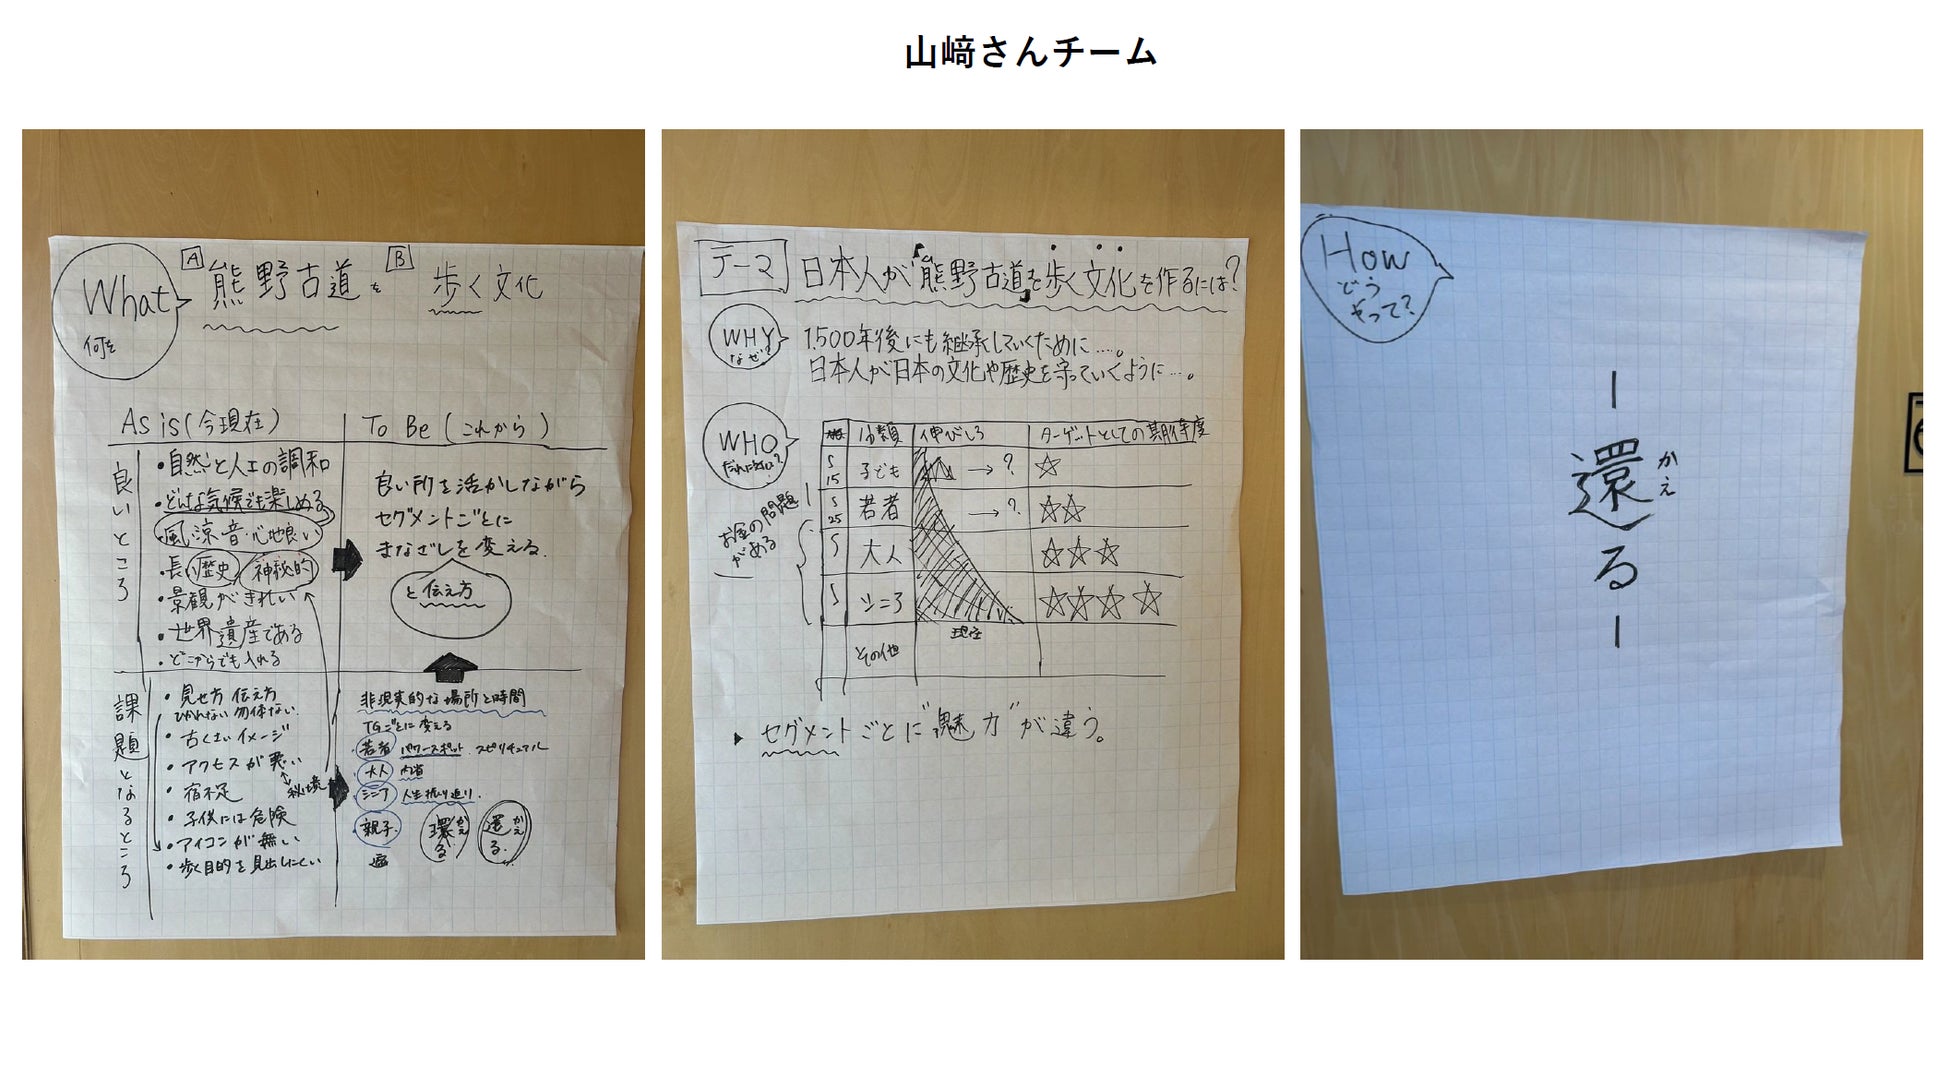 山﨑さんチーム
What
何を
A 熊野古道を B 歩く文化
As is(今現在)
To Be(これから)
良いところ
・自然と人工の調和
・どんな気候でも楽しめる
・風、涼、音・心地良い
・長い歴史 神秘的
・景観がきれい
・世界遺産である
・どこからでも入れる
良い所を活かしながら
セグメントごとに
まなざしを変える。
と伝え方
課題となるところ
・見せ方 伝え方
ひかれない 勿体ない
・古くさいイメージ
・アクセスが悪い
秘境
・宿不足
・子供には危険
・アイコンが無い
・歩く目的を見出しにくい
非現実的な場所と時間
TGごとに変える
・若者 パワースポット、スピリチュアル
・大人 内省
・シニア 人生振り返り.
・親子.
環る かえ
還る. かえ
テーマ 日本人が"熊野古道"を歩く文化を作るには?
WHY
なぜ?
1,500年後にも継承していくために….。
日本人が日本の文化や歴史を守っていくように….。
WHO
だれに対し?
分類 伸びしろ ターゲットとしての期待度
S 15 子ども → ? ☆
S 25 若者 → ? ☆☆
S 大人 ☆☆☆
S シニア ☆☆☆☆
現在
その他
お金の問題
がある
▶ セグメントごとに"魅力"が違う。
How
どう
やって?
ー還るー
かえ